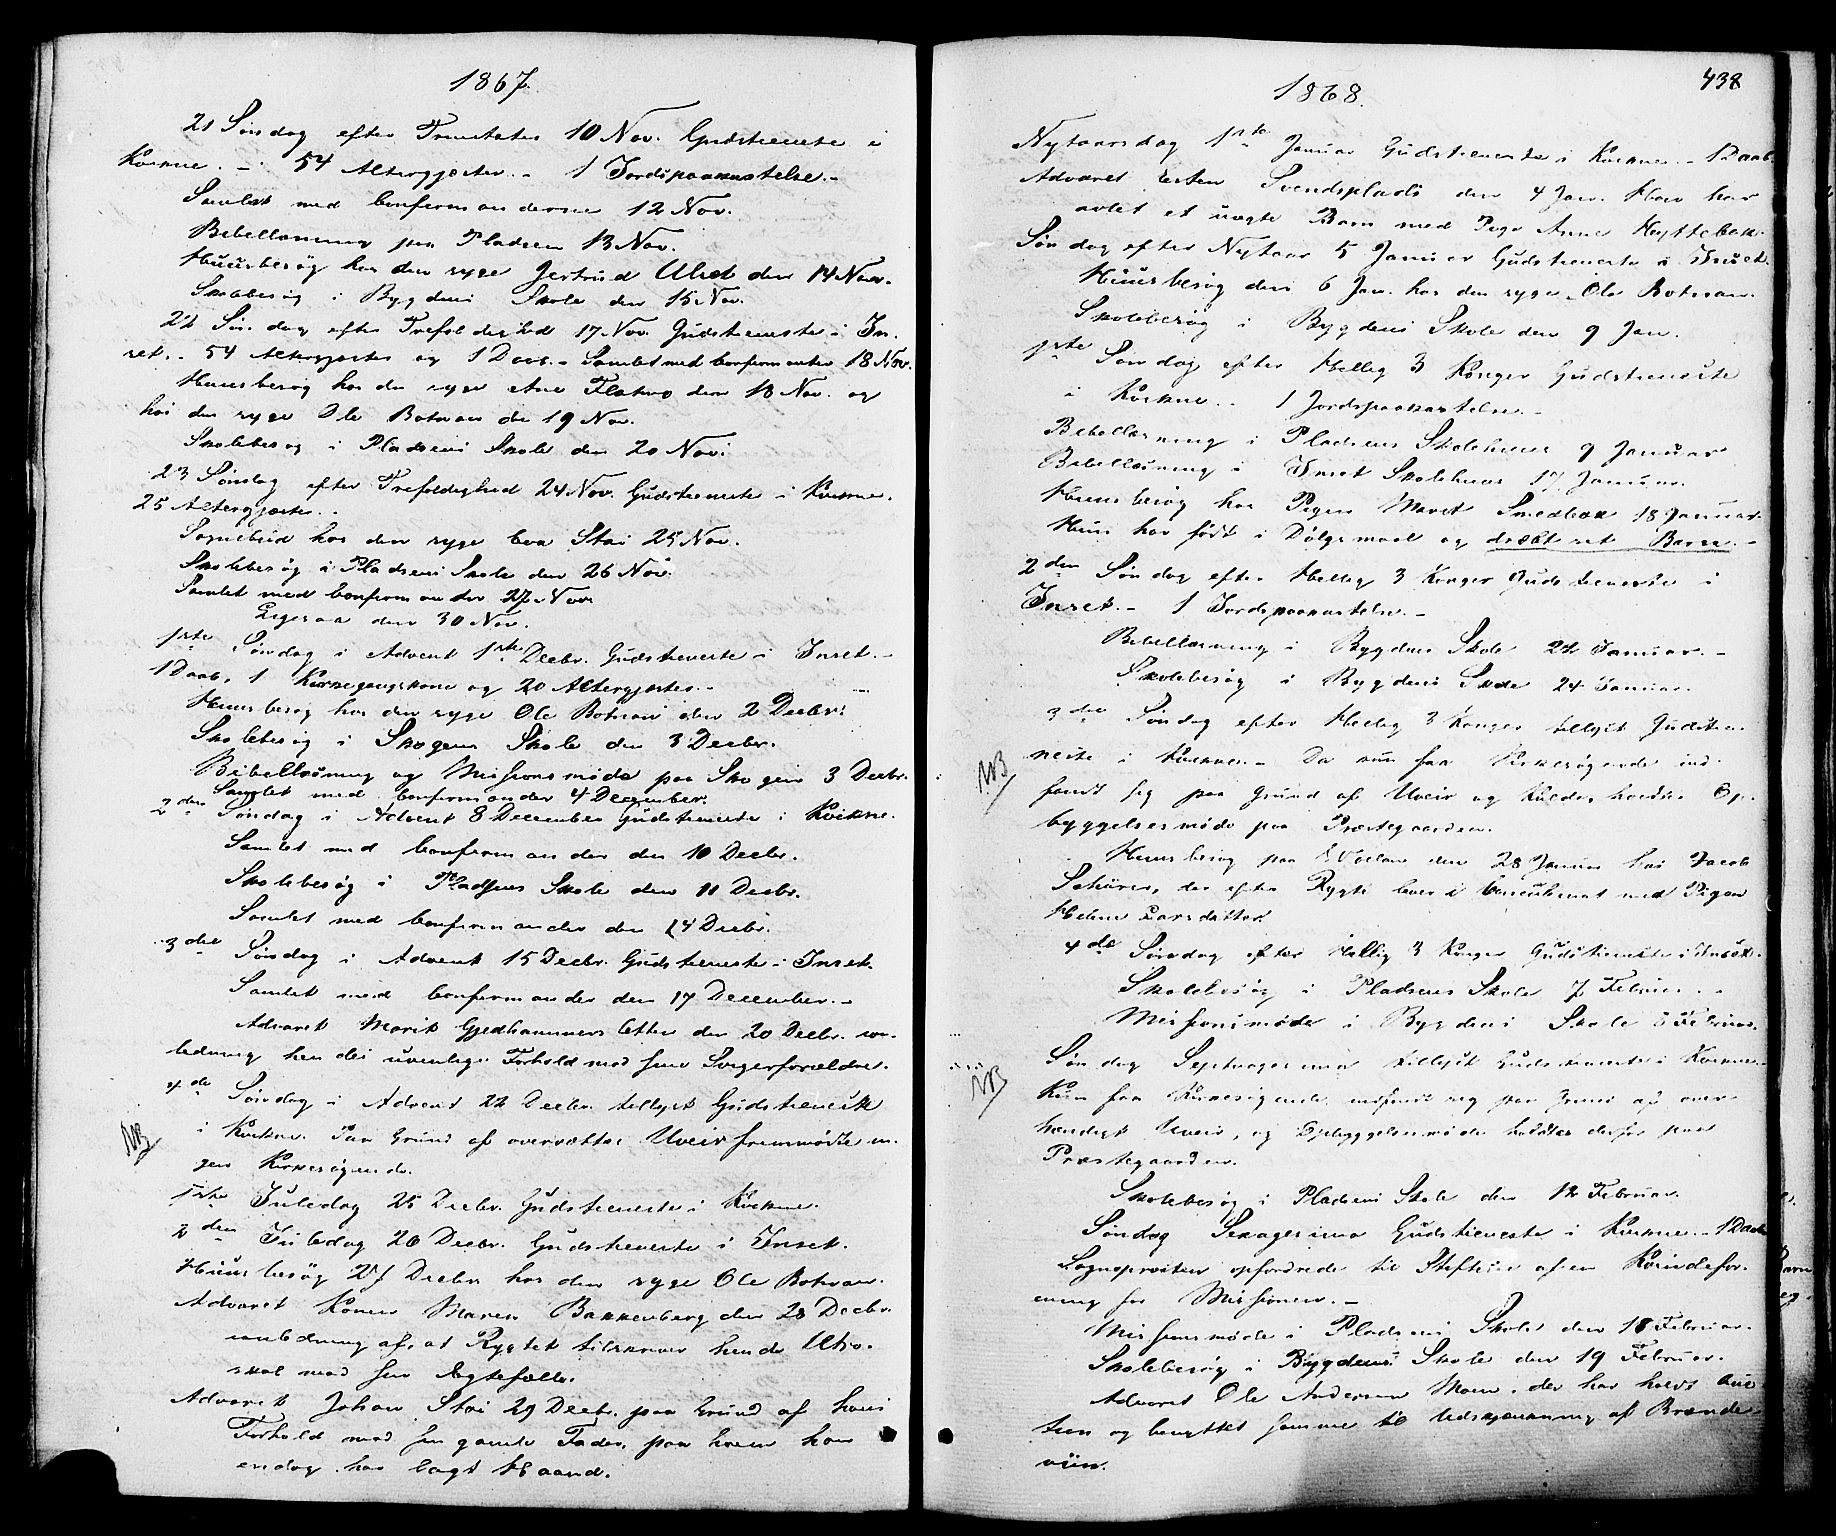 1867.
21 Søndag efter Trinitatis 10 Nov. Gudstieneste i
Kvikne. – 54 Altergjester. – 1 Jordspaakastelse. –
Samlet med Confirmanderne 12 Nov.
Bibellæsning paa Pladsen 13 Nov.
Huusbesøg hos den syge Gertrud Ulset den 14 Nov.
Skolebesøg i Bygdens Skole den 15 Nov.
22 Søndag efter Trefoldighed 17 Nov. Gudstieneste i In-
set. – 54 Altergjester og 1 Daab. – Samlet med Confirmanter 18 Nov.
Huusbesøg hos den syge Ane Flatmo den 18 Nov. og
hos den syge Ole Botnan den 19 Nov.
Skolebesøg i Pladsens Skole den 20 Nov.
23 Søndag efter Trefoldighed 24 Nov. Gudstieneste i Kvikne.
25 Altergjester.
Sognebud hos den syge Eva Stai 25 Nov.
Skolebesøg i Pladsens Skole den 26 Nov.
Samlet med Confirmander 27 Nov.
Ligesaa den 30 Nov.
1ste Søndag i Advent 1ste Decbr. Gudstieneste i Inset. –
1 Daab, 1 Kirkegangskone og 20 Altergjester. –
Huusbesøg hos den syge Ole Botnan den 2 Decbr.
Skolebesøg i Skogens Skole den 3 Decbr.
Bibellæsning og Missionsmøde paa Skogen 3 Decbr.
Samlet med Confirmander 4 December.
2den Søndag i Advent 8 December Gudstieneste i Kvikne.
Samlet med Confirmander den 10 Decbr.
Skolebesøg i Pladsens Skole den 11 Decbr.
Samlet med Confirmander den 14 Decbr.
3die Søndag i Advent 15 Decbr. Gudstieneste i Inset.
Samlet med Confirmander den 17 December. –
Advaret Marit Gjedhammersletten den 20 Decbr. an-
ledning hendes uvenlige Forhold mod sine Svigerforældre.
4de Søndag i Advent 22 Decbr. tillyst Gudstieneste
NB i Kvikne. Paa Grund af overvættes Uveir fremmødte in-
gen Kirkesøgende.
1ste Juledag 25 Decbr. Gudstieneste i Kvikne.
2den Juledag 26 Decbr. Gudstieneste i Inset.
Huusbesøg 27 Decbr. hos den syge Ole Botnan.
Advaret Konen Maren Bakkenberg den 28 Decbr.
anledning af, at Rygtet tilskriver hende Utro-
skab mod sin Ægtefælle.
Advaret Johan Stai 29 Decbr. paa Grund af hans
Forhold mod sin gamle Fader, paa hvem han
endog har lagt Haand.
1868.
438
Nytaarsdag 1ste Januar Gudstieneste i Kvikne. – 1 Daab.
Advaret Esten Svendsplads den 4 Jan. Han har
avlet et uægte Barn med Pige Anne Hyttebak.
Søndag efter Nytaar 5 Januar Gudstieneste i Inset.
Huusbesøg den 6 Jan. hos den syge Ole Botnan.
Skolebesøg i Bygdens Skole den 9 Jan.
1ste Søndag efter Hellig 3 Konger Gudstieneste
i Kvikne. – 1 Jordspaakastelse. –
Bibellæsning i Pladsens Skolehuus 9 Januar
Bibellæsning i Inset Skolehuus 17 Januar.
Huusbesøg hos Pigen Marit Smedbak 18 Januar.
Hun har født i Dølgsmaal og dræbt sit Barn. –
2den Søndag efter Hellig 3 Konger Gudstieneste i
Inset. – 1 Jordspaakastelse. –
Bibellæsning i Bygdens Skole 22 Januar. –
Skolebesøg i Bygdens Skole 24 Januar.
3die Søndag efter Hellig 3 Konger tillyst Gudstie-
NB neste i Kvikne. – Da kun faa Kirkesøgende ind-
fandt sig paa Grund af Uveir og Kulde, holdtes Op-
byggelsesmøde paa Præstegaarden.
Huusbesøg paa den 28 Januar hos Jacob
der efter Rygte lever i Concubinat med Pigen
Helene Larsdatter.
4de Søndag efter Hellig 3 Konger Gudstieneste i Inset.
Skolebesøg i Pladsens Skole 7 Februar. –
Missionsmøde i Bygdens Skole 8 Februar.
Søndag Septuagesima tillyst Gudstieneste i Kvikne. –
NB Kun faa Kirkesøgende indfandt sig paa Grund af over-
hændigt Uveir, og Opbyggelsesmøde holdtes derfor paa
Præstegaarden.
Skolebesøg i Pladsens Skole den 12 Februar.
Søndag Sexagesima Gudstieneste i Kvikne. – 1 Daab
Sognepræsten opfordrede til Stiftelse af en Kvindefor-
ening for Missionen. –
Missionsmøde i Pladsens Skole den 18 Februar.
Skolebesøg i Bygdens Skole den 19 Februar.
Advaret Ole Andersen Moen, der har holdt Auc-
tion og benyttet samme til Udskjænkning af Brænde-
viin.